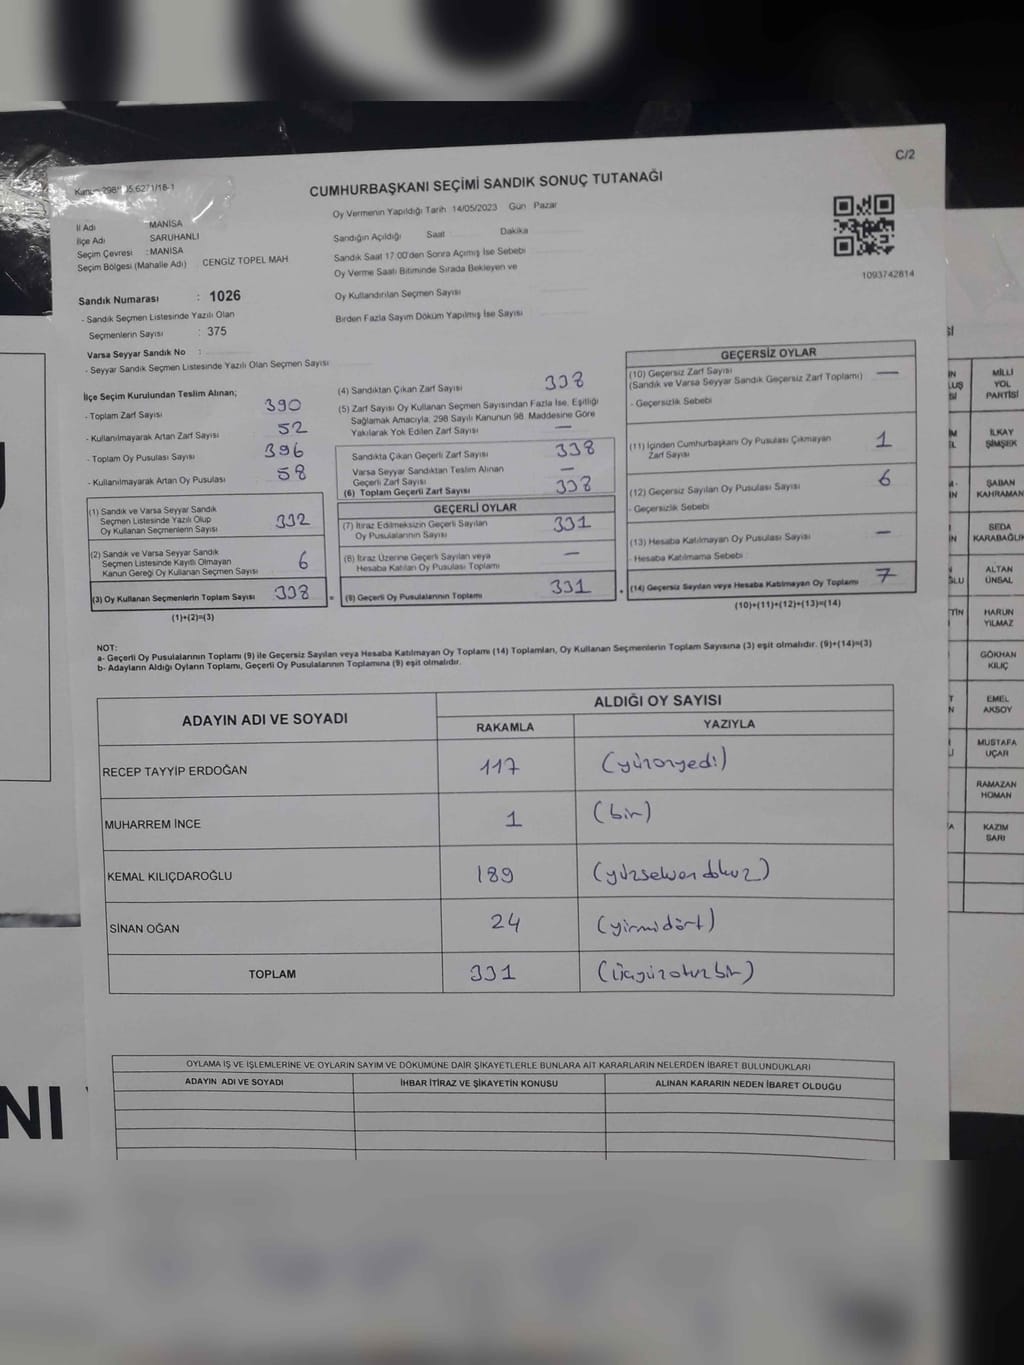 C/2
CUMHURBAŞKANI SEÇİMİ SANDIK SONUÇ TUTANAĞI
Oy Vermenin Yapıldığı Tarih 14/05/2023 Gün Pazar
İl Adı : MANİSA
İlçe Adı SARUHANLI
Seçim Çevresi : MANİSA
Seçim Bölgesi (Mahalle Adı) CENGİZ TOPEL MAH
Sandık Numarası : 1026
- Sandık Seçmen Listesinde Yazılı Olan
Seçmenlerin Sayısı : 375
Varsa Seyyar Sandık No :
- Seyyar Sandık Seçmen Listesinde Yazılı Olan Seçmen Sayısı
Sandığın Açıldığı Saat Dakika
Sandık Saat 17:00'den Sonra Açımış İse Sebebi
Oy Verme Saati Bitiminde Sırada Bekleyen ve
Oy Kullandırılan Seçmen Sayısı
Birden Fazla Sayım Döküm Yapılmış İse Sayısı
1093742814
İlçe Seçim Kurulundan Teslim Alınan;
- Toplam Zarf Sayısı 390
- Kullanılmayarak Artan Zarf Sayısı 52
- Toplam Oy Pusulası Sayısı 396
- Kullanılmayarak Artan Oy Pusulası 58
(1) Sandık ve Varsa Seyyar Sandık
Seçmen Listesinde Yazılı Olup
Oy Kullanan Seçmenlerin Sayısı 332
(2) Sandık ve Varsa Seyyar Sandık
Seçmen Listesinde Kayıtlı Olmayan
Kanun Gereği Oy Kullanan Seçmen Sayısı 6
(3) Oy Kullanan Seçmenlerin Toplam Sayısı 338
(1)+(2)=(3)
(4) Sandıktan Çıkan Zarf Sayısı 338
(5) Zarf Sayısı Oy Kullanan Seçmen Sayısından Fazla İse, Eşitliği
Sağlamak Amacıyla, 298 Sayılı Kanunun 98. Maddesine Göre
Yakılarak Yok Edilen Zarf Sayısı —
Sandıkta Çıkan Geçerli Zarf Sayısı 338
Varsa Seyyar Sandıktan Teslim Alınan
Geçerli Zarf Sayısı —
(6) Toplam Geçerli Zarf Sayısı 338
GEÇERLİ OYLAR
(7) İtiraz Edilmeksizin Geçerli Sayılan
Oy Pusulalarının Sayısı 331
(8) İtiraz Üzerine Geçerli Sayılan veya
Hesaba Katılan Oy Pusulası Toplamı —
(9) Geçerli Oy Pusulalarının Toplamı 331
GEÇERSİZ OYLAR
(10) Geçersiz Zarf Sayısı —
(Sandık ve Varsa Seyyar Sandık Geçersiz Zarf Toplamı)
- Geçersizlik Sebebi
(11) İçinden Cumhurbaşkanı Oy Pusulası Çıkmayan
Zarf Sayısı 1
(12) Geçersiz Sayılan Oy Pusulası Sayısı 6
- Geçersizlik Sebebi
(13) Hesaba Katılmayan Oy Pusulası Sayısı —
- Hesaba Katılmama Sebebi
(14) Geçersiz Sayılan veya Hesaba Katılmayan Oy Toplamı 7
(10)+(11)+(12)+(13)=(14)
NOT:
a- Geçerli Oy Pusulalarının Toplamı (9) ile Geçersiz Sayılan veya Hesaba Katılmayan Oy Toplamı (14) Toplamları, Oy Kullanan Seçmenlerin Toplam Sayısına (3) eşit olmalıdır. (9)+(14)=(3)
b- Adayların Aldığı Oyların Toplamı, Geçerli Oy Pusulalarının Toplamına (9) eşit olmalıdır.
ADAYIN ADI VE SOYADI ALDIĞI OY SAYISI
RAKAMLA YAZIYLA
RECEP TAYYİP ERDOĞAN 117 (yüzonyedi)
MUHARREM İNCE 1 (bir)
KEMAL KILIÇDAROĞLU 189 (yüzseksendokuz)
SİNAN OĞAN 24 (yirmidört)
TOPLAM 331 (üçyüzotuzbir)
OYLAMA İŞ VE İŞLEMLERİNE VE OYLARIN SAYIM VE DÖKÜMÜNE DAİR ŞİKAYETLERLE BUNLARA AİT KARARLARIN NELERDEN İBARET BULUNDUKLARI
ADAYIN ADI VE SOYADI İHBAR İTİRAZ VE ŞİKAYETİN KONUSU ALINAN KARARIN NEDEN İBARET OLDUĞU
MİLLİ
YOL
PARTİSİ
İLKAY
ŞİMŞEK
ŞABAN
KAHRAMAN
SEDA
KARABAĞLI
ALTAN
ÜNSAL
HARUN
YILMAZ
GÖKHAN
KILIÇ
EMEL
AKSOY
MUSTAFA
UÇAR
RAMAZAN
HOMAN
KAZIM
SARI
NI